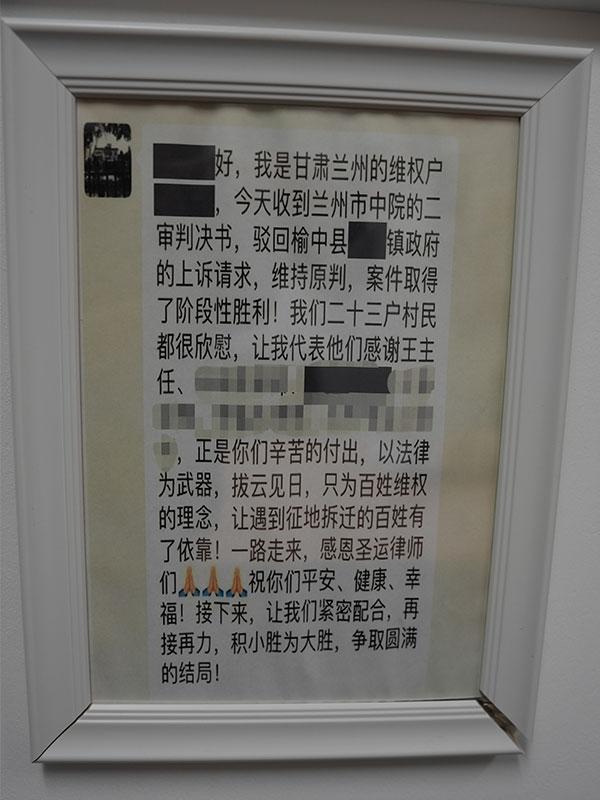 好，我是甘肃兰州的维权户
，今天收到兰州市中院的二
审判决书，驳回榆中县 镇政府
的上诉请求，维持原判，案件取得
了阶段性胜利！我们二十三户村民
都很欣慰，让我代表他们感谢王主
任、
，正是你们辛苦的付出，以法律
为武器，拔云见日，只为百姓维权
的理念，让遇到征地拆迁的百姓有
了依靠！一路走来，感恩圣运律师
们🙏🙏🙏祝你们平安、健康、幸
福！接下来，让我们紧密配合，再
接再力，积小胜为大胜，争取圆满
的结局！